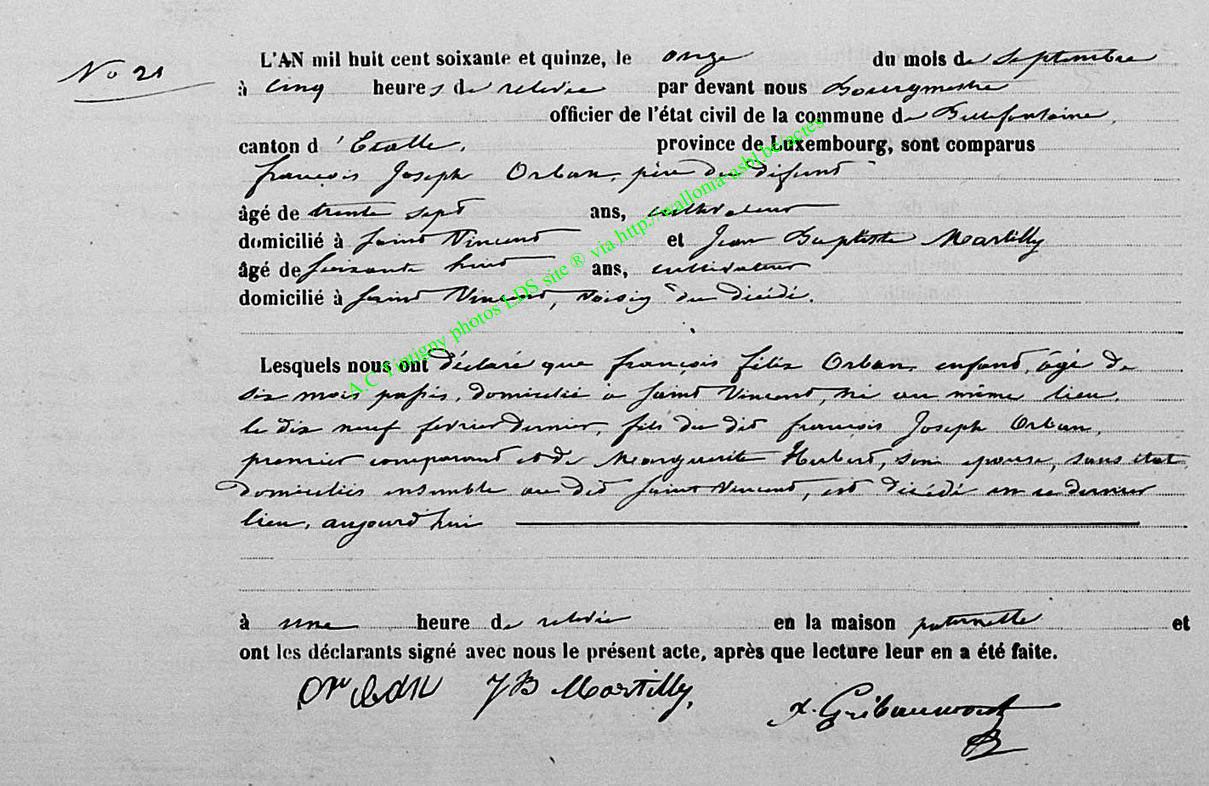 No 21
L'AN mil huit cent soixante et quinze, le onze du mois de Septembre
à cinq heures de relevée par devant nous Bourgmestre
officier de l'état civil de la commune de Bellefontaine,
canton d'Etalle, province de Luxembourg, sont comparus
françois Joseph Orban, père du défunt
âgé de trente sept ans, cultivateur
domicilié à Saint Vincent et Jean Baptiste Martilly
âgé de soixante huit ans, cultivateur
domicilié à Saint Vincent, voisin du décédé.
Lesquels nous ont déclaré que françois félix Orban, enfant, âgé de
six mois passés, domicilié à Saint Vincent, né au même lieu,
le dix neuf février dernier, fils du dit françois Joseph Orban,
premier comparant et de Marguerite Hubert, son épouse, sans état
domiciliés ensemble au dit Saint Vincent, est décédé en ce dernier
lieu, aujourd'hui
à une heure de relevée en la maison paternelle et
ont les déclarants signé avec nous le présent acte, après que lecture leur en a été faite.
Orban JB Martilly,
A.C Tintigny photos LDS site ® via http://wallonia-asbl.be/actes